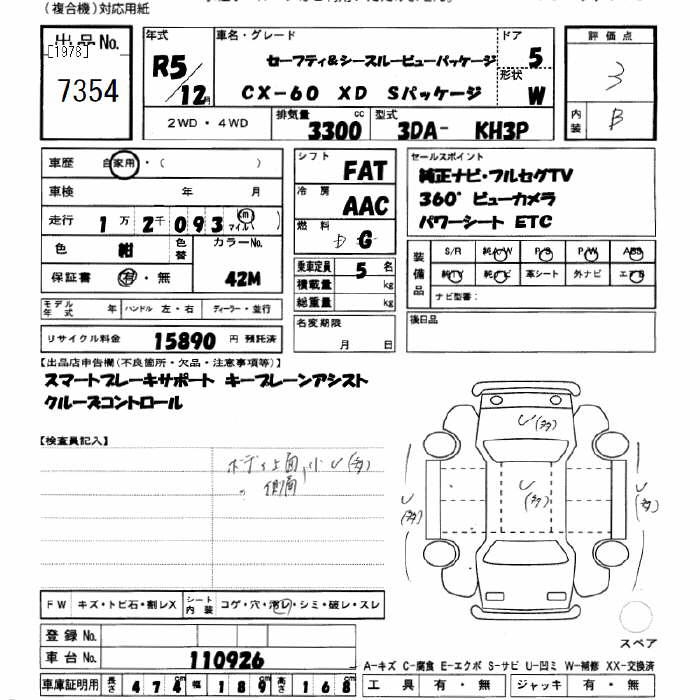 (複合機)対応用紙
出品No.
[1978]
7354
年式
R5/12月
車名・グレード
セーフティ&シースルービューパッケージ
CX-60 XD Sパッケージ
ドア
5
形状
W
2WD・4WD
排気量
3300 cc
型式
3DA- KH3P
評価点
3
内装
B
車歴 自家用・( )
車検 年 月
走行 1万2千093 km マイル( )
色 紺 色替 カラーNo. 42M
保証書 有・無
モデル年式 年 ハンドル 左・右 ディーラー・並行
リサイクル料金 15890 円 預託済
シフト FAT
冷房 AAC
燃料 G
乗車定員 5 名
積載量 kg
総重量 kg
名変期限
月 日
セールスポイント
純正ナビ・フルセグTV
360°ビューカメラ
パワーシート ETC
装備品
S/R 純A/W P/S P/W ABS
純TV 純ナビ 革シート 外ナビ エアB
ナビ型番:
後日品
【出品店申告欄(不良箇所・欠品・注意事項等)】
スマートブレーキサポート キープレーンアシスト
クルーズコントロール
【検査員記入】
ボディ上面、小U(多)
〃 側面
U(多)
U(多)
U(多)
U(多)
FW キズ・トビ石・割レX シート内装 コゲ・穴・汚レ・シミ・破レ・スレ
スペア
登録No.
車台No. 110926
A-キズ C-腐食 E-エクボ S-サビ U-凹ミ W-補修 XX-交換済
車庫証明用 長さ 474cm 幅 189cm 高さ 168cm
工具 有・無 ジャッキ 有・無